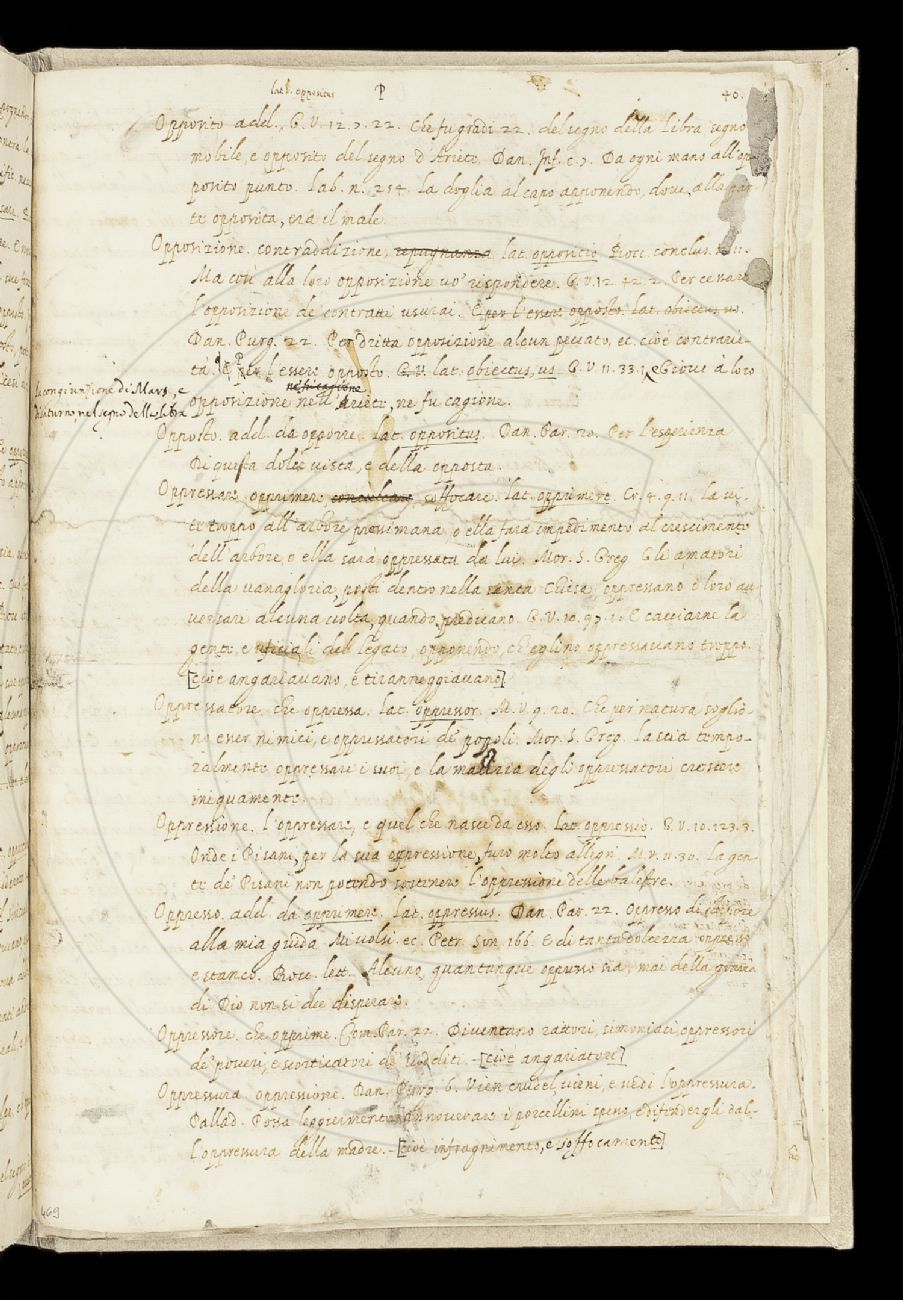 lat. oppositus
P
40.
Opposito add. G.V. 12. 2. 22. Che fu gradi 22. del segno della Libra segno
mobile, e opposito del segno d'Ariete. Dan. Inf. c. 7. Da ogni mano all'op-
posito punto. Lab. n. 254. la doglia al capo apponendo, dove, alla par-
te opposita, era il male.
Opposizione. contraddizione, repugnanza. lat. oppositio Bocc. conclus. n.
Ma così alla loro opposizione vo' rispondere. G.V. 12. 42. 2. Per cessare
l'opposizione de contratti usurai. E per l'essere opposto. lat. obiectus, us.
Dan. Purg. 22. Per dritta opposizione alcun peccato, ec. cioè contrarie-
tà. E Per l'essere opposto. G.V. lat. obiectus, us. G.V. 11. 33. 1. e Giove à loro
la congiunzione di Mars, e
di Saturno, nel segno della libra
opposizione nell'Ariete, ne fu cagione.
Opposto. add. da opporre. lat. oppositus. Dan. Par. 20. Per l'esperienza
Di questa dolce vista, e della opposta.
Oppressare. opprimere conculcare, soffocare. lat. opprimere. Cr. 4. 9. 11. la vi-
te troppo all'arbore prossimana, o ella farà impedimento al crescimento
dell'arbore, o ella sarà oppressata da lui. Mor. S. Greg. Gli amatori
della vanagloria, posti dentro nella santa Chiesa, oppressano i loro av-
versari alcuna volta, quando predicano. G.V. 10. 97. 1. E cacciarne la
gente, e uficiali del legato, opponendo, ch'eglino oppressavano troppo.
[cioè angariavano, e tiranneggiavano]
Oppressatore. che oppressa. lat. oppressor. M.V. 9. 20. Che per natura soglio-
no esser nemici, e oppressatori de' popoli. Mor. S. Greg. Lascia tempo-
ralmente oppressare i suoi, e la malizia degli oppressatori crescere
iniquamente.
Oppressione. l'oppressare, e quel che nasce da esso. lat. oppressio. G.V. 10. 123. 3.
Onde i Pisani, per la sua oppressione, furo molto allegri. M.V. 11. 30. La gen-
te de' Pisani non potendo sostenere l'oppressione delle balestre.
Oppresso. add. da opprimere. lat. oppressus. Dan. Par. 22. Oppresso di stupore
alla mia guida Mi volsi. ec. Petr. Son. 166. E di tanta dolcezza oppresso
e stanco. Bocc. lett. Alcuno, quantunque oppresso sia, mai della grazia
di Dio non si dee disperare.
Oppressore. che opprime. Com. Par. 22. Diventano rattori, simoniaci, oppressori
de' poveri, e scorticatori de' sudditi. - [cioè angariatori]
Oppressura. oppressione. Dan. Purg. 6. Vien crudel, vieni, e vedi l'oppressura.
Pallad. Possa leggiermente annoverare i porcellini spesso, e difendergli dal-
l'oppressura della madre. - [cioè infragnimento, e soffocamento]
469